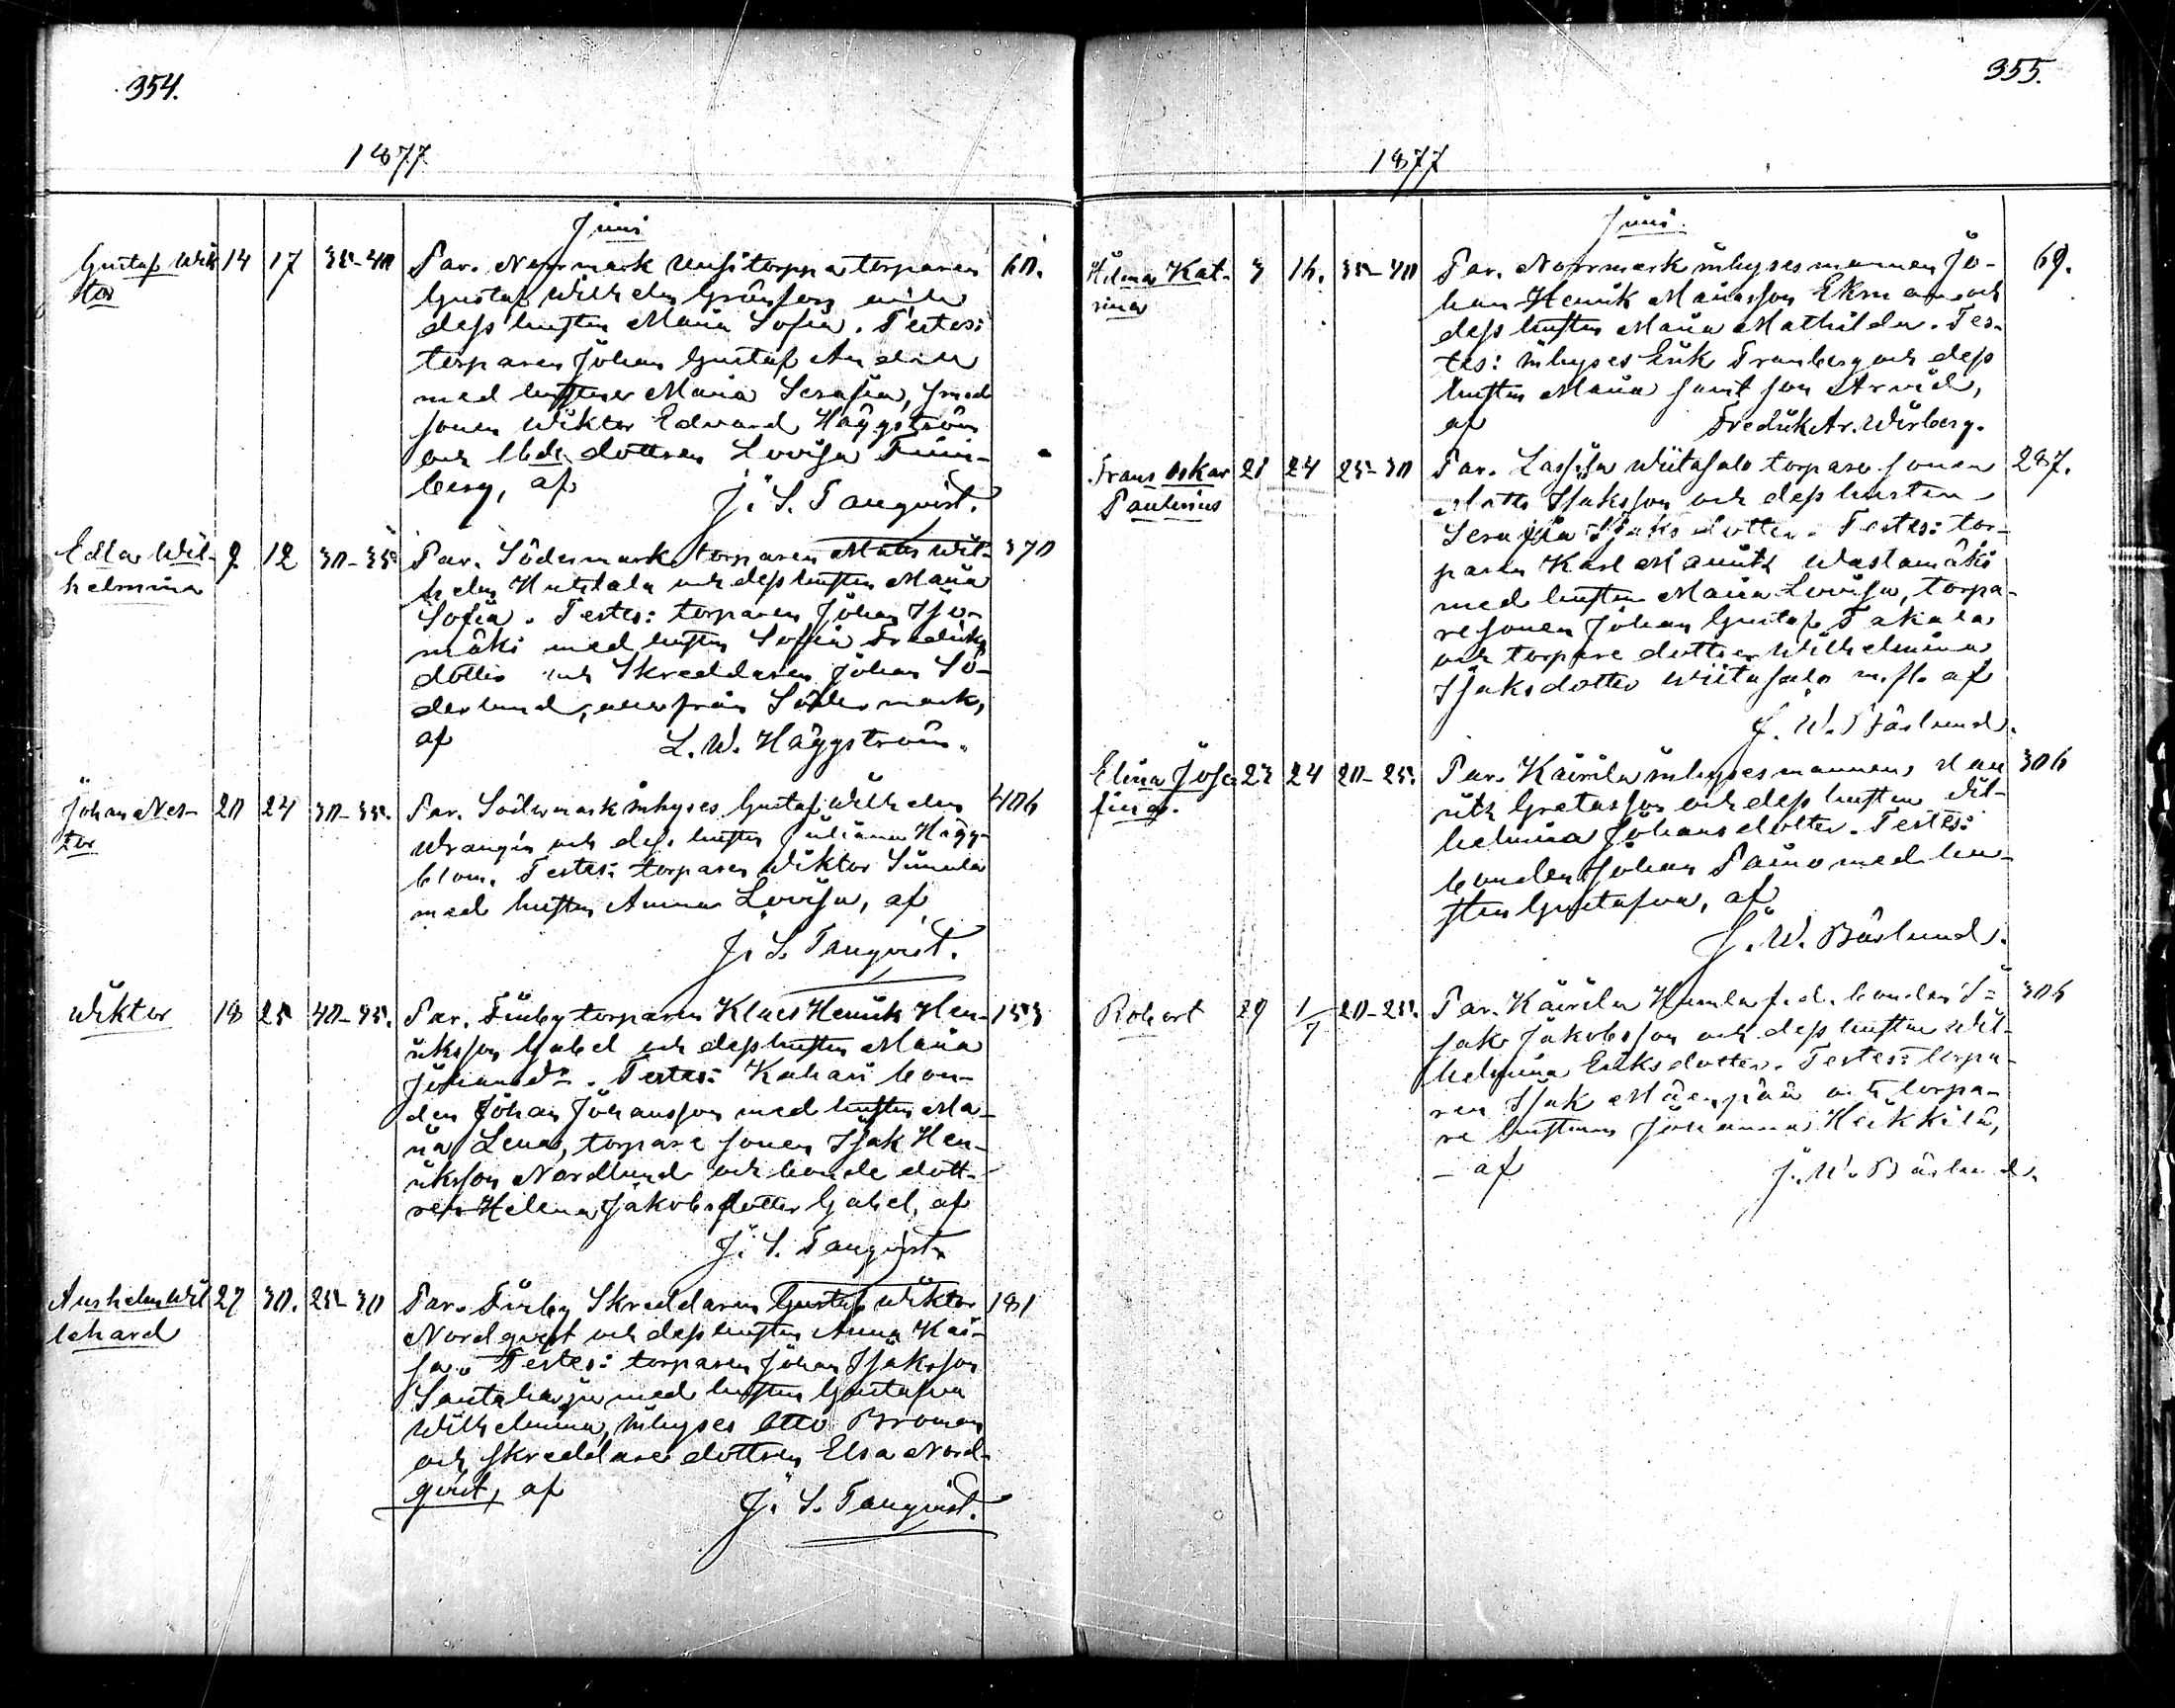 354.
1877
Juni
Gustaf Wik- 14 17 35-40 Par. Norrmark Uusitorppa torparen 60.
tor Gustaf Wilhelm Grönfors och
dess hustru Maria Sofia. Testes:
torparen Johan Gustaf
med hustrun Maria Serafia, smed
sonen Wiktor Edvard Häggström
och dottren Lovisa
berg, af J. S. Tanqvist.
Edla Wil- 9 12 30-35 Par. Södermark torparen Matts Wil- 370
helmina helm Huhtala och dess hustru Maria
Sofia. Testes: torparen Johan Iso-
mäki med hustru Sofia Fredriks
dotter och Skreddaren Johan Sö-
derlund, alla från Södermark,
af L. W. Häggström.
Johan Nes- 20 24 30-35. Par. Södermark inhyses Gustaf Wilhelm 406
tor Wrangén och dess hustru Juliana Hägg-
blom. Testes: torparen Wiktor Simula
med hustru Anna Lovisa, af
J. S. Tanqvist.
Wiktor 18 25 40-45. Par. Finby torparen Klaes Henrik Hen- 153
riksson Gabel och dess hustru Maria
Johansdr. Testes: Kahari bon-
den Johan Johansson med hustru Ma-
ria Lena, torpare sonen Isak Hen-
riksson Nordlund och bonde dott-
ren Helena Jakobsdotter Gabel, af
J. S. Tanqvist.
Anshelm Wil- 27 30. 25-30 Par. Finby Skreddaren Gustaf Wiktor 181
lehard Nordqvist och dess hustru Anna Kai-
sa. Testes: torparen Johan Isaksson
Säntaharju med hustru Gustafva
Wilhelmina, inhyses Otto Broman
och skreddare dottren Elsa Nord-
qvist, af J. S. Tanqvist.
355.
1877
Juni.
Hilma Kat- 3 16. 35-40 Par. Norrmark inhyses mannen Jo- 69.
rina han Henrik Mariasson Ekman och
dess hustru Maria Mathilda. Tes-
tes: inhyses Erik Tranberg och dess
hustru Maria samt son Arvid,
af Fredrik Ar. Wirberg.
Frans Oskar 21 24 25-30 Par. Lassila Wiitasalo torpare sonen 287.
Paulinus Matts Isaksson och dess hustru
Serafia Isaksdotter. Testes: tor-
paren Karl Mauritz Wastamäki
med hustru Maria Lovisa, torpa-
re sonen Johan Gustaf Takala
och torpare dottren Wilhelmina
Isaksdotter Wiitasalo m.fl. af
J. W. Båslund.
Elina Jose- 23 24 20-25. Par. Kairila inhyses mannen Mau 306
fina. ritz Gretasson och dess hustru Wil-
helmina Johansdotter. Testes:
bonden Johan Paino med hu-
stru Gustafva, af
J. W. Båslund.
Robert 29 1/7 20-25. Par. Kairila Humla f.d. bonden I- 306
sak Jakobsson och dess hustru Wil-
helmina Eriksdotter. Testes: torpa-
ren Isak Mäenpää och torpa-
re hustrun Johanna Heikkilä,
- af J. W. Båslund.